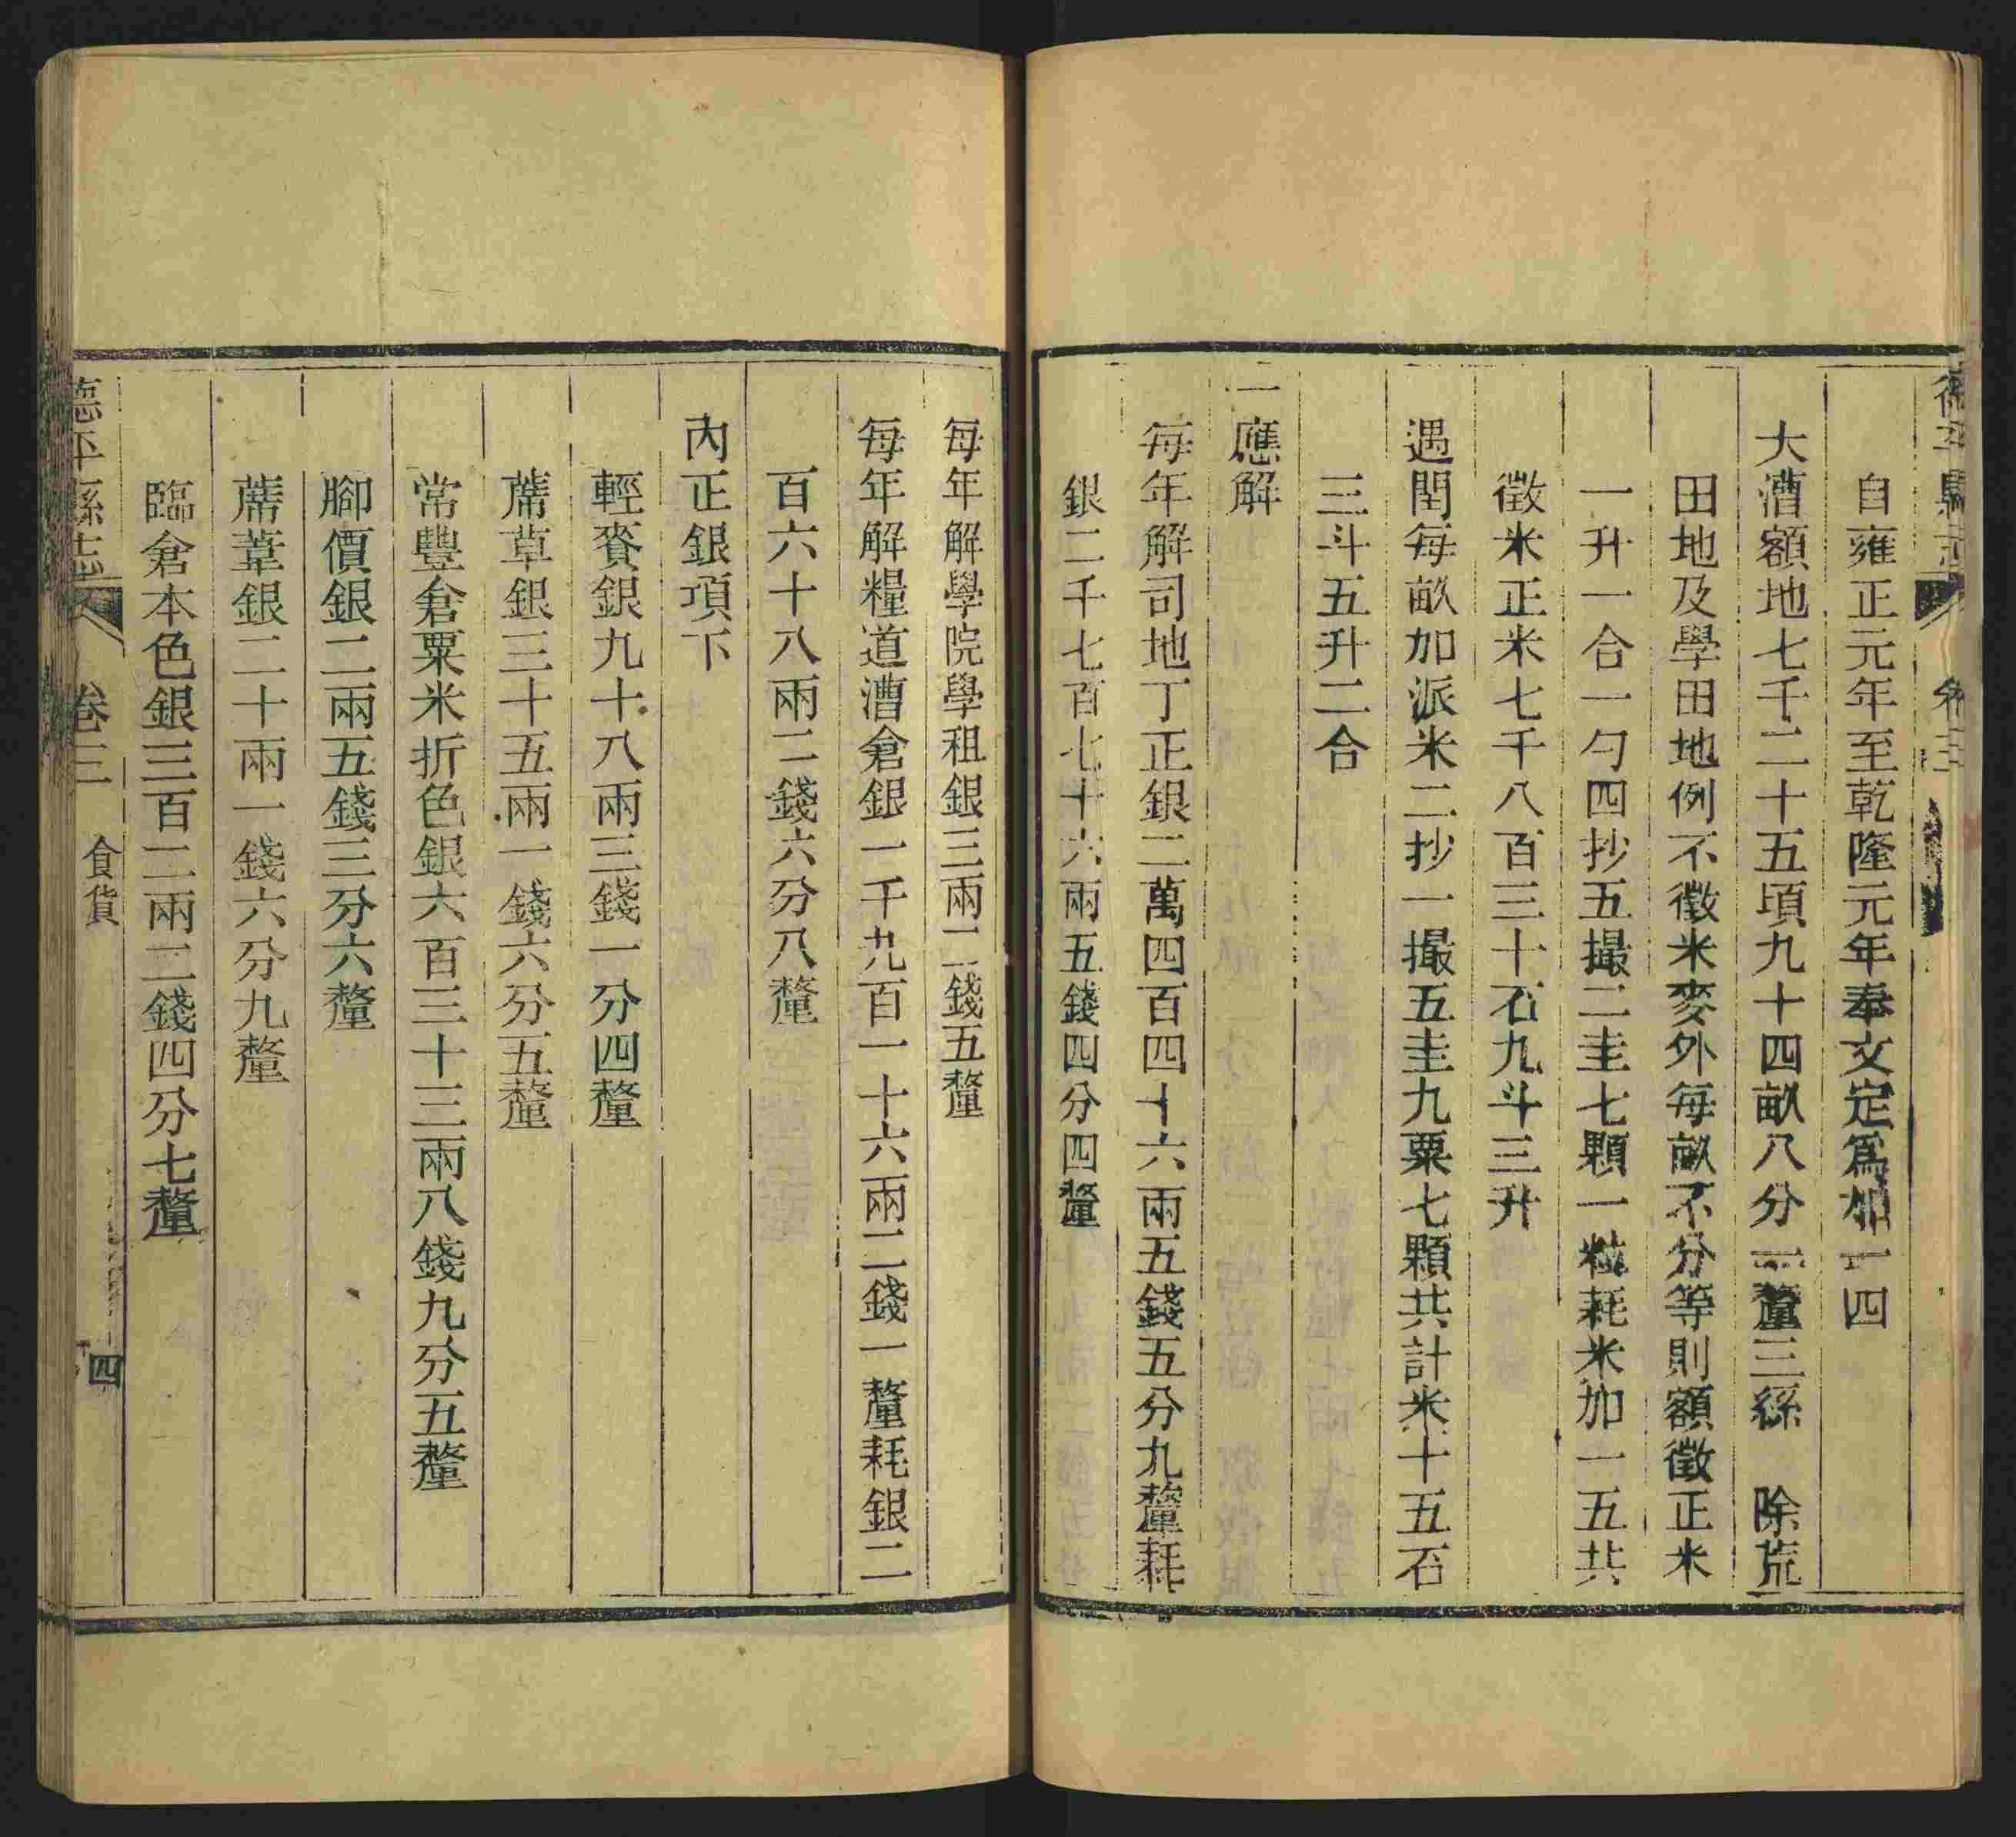 德平縣志
卷三
自雍正元年至乾隆元年奉文定爲加一四
大漕額地七千二十五頃九十四畝八分二釐三絲　除荒
田地及學田地例不徵米麥外每畝不分等則額徵正米
一升一合一勺四抄五撮二圭七顆一粒耗米加一五共
徵米正米七千八百三十石九斗三升
遇閏每畝加派米二抄一撮五圭九粟七顆共計米十五石
三斗五升二合
一應解
每年解司地丁正銀二萬四百四十六兩五錢五分九釐耗
銀二千七百七十六兩五錢四分四釐
每年解學院學租銀三兩二錢五釐
每年解糧道漕倉銀一千九百一十六兩二錢一釐耗銀二
百六十八兩二錢六分八釐
內正銀項下
輕賚銀九十八兩三錢一分四釐
蓆草銀三十五兩一錢六分五釐
常豐倉粟米折色銀六百三十三兩八錢九分五釐
腳價銀二兩五錢三分六釐
蓆葦銀二十兩一錢六分九釐
臨倉本色銀三百二兩二錢四分七釐
德平縣志
卷三
食貨
四